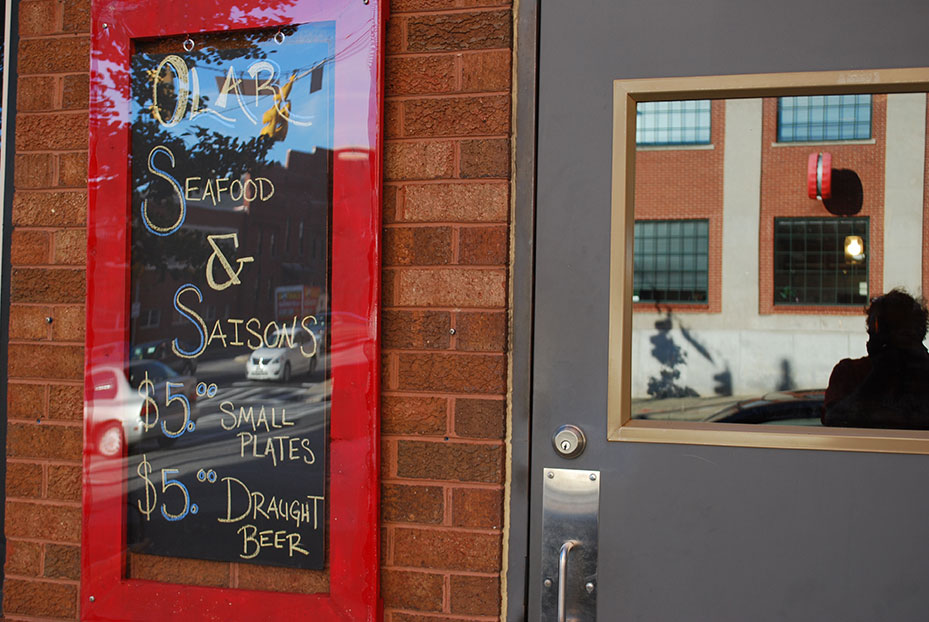 OLAR
SEAFOOD
&
SAISONS
$5.00 SMALL
PLATES
$5.00 DRAUGHT
BEER